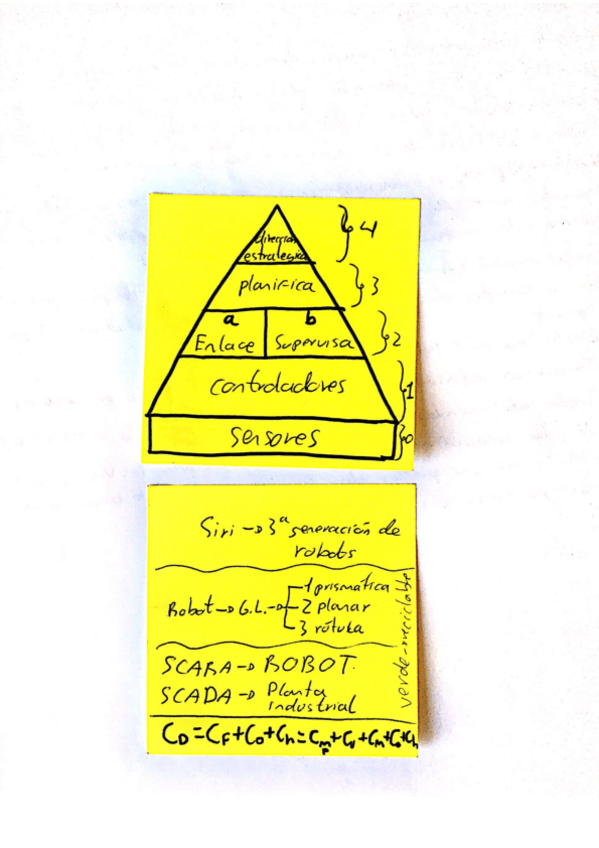 dirección } 4
estrategica
planifica } 3
a b
Enlace Supervisa } 2
controladores } 1
sensores } 0
Siri → 3ª generación de
robots
Robot → G.L. → 1 prismática
2 planar
3 rótula
verde → reciclable
SCARA → ROBOT.
SCADA → Planta
industrial